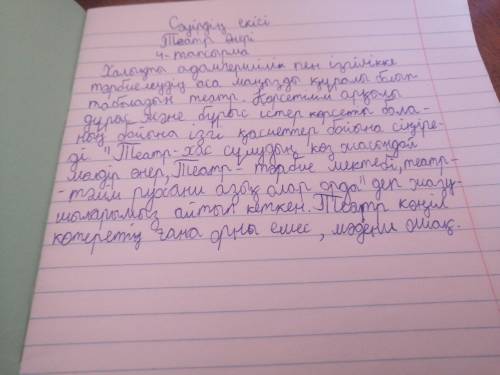 Сәуірдің екісі
Театр өнері
4-тапсырма
Халықты адамгершілік пен ізгілікке
тәрбиелеудің аса маңызды құралы болып
табыладын театр. Көрсетілім арқылы
дұрыс және бұрыс істер көрсетіп бала-
ның бойына ізгі қасиеттер бойына сіңіре-
ді "Театр-хас сұлудың көз жасындай
мөлдір өнер, Театр- тәрбие мектебі, театр-
-тәлім рухани азық алар орда" деп жазу-
шыларымыз айтып кеткен. Театр көңіл
көтеретің ғана орны емес, мәдени ошақ.